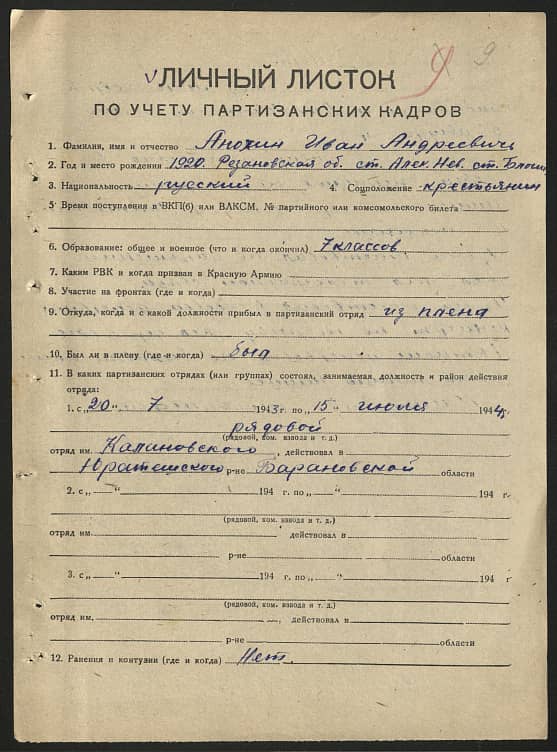 9
ЛИЧНЫЙ ЛИСТОК
ПО УЧЕТУ ПАРТИЗАНСКИХ КАДРОВ
1. Фамилия, имя и отчество Анохин Иван Андреевич
2. Год и место рождения 1920. Резановская об. ст. Алек. Нев. ст.
3. Национальность русский 4. Соцположение крестьянин
5. Время поступления в ВКП(б) или ВЛКСМ, № партийного или комсомольского билета
6. Образование: общее и военное (что и когда окончил) 7 классов
7. Каким РВК и когда призван в Красную Армию
8. Участие на фронтах (где и когда)
9. Откуда, когда и с какой должности прибыл в партизанский отряд из плена
10. Был ли в плену (где и когда) был
11. В каких партизанских отрядах (или группах) состоял, занимаемая должность и район действия
отряда:
1. с „20“ 7 1943 г. по „15“ июля 1944 г.
рядовой
(рядовой, ком. взвода и т. д.)
отряд им. Калановского, действовал в
Юратишского р-не Барановской области
2. с „ “ 194 г. по „ “ 194 г.
(рядовой, ком. взвода и т. д.)
отряд им. действовал в
р-не области
3. с „ “ 194 г. по „ “ 194 г
(рядовой, ком. взвода и т. д.)
отряд им. , действовал в
р-не области
12. Ранения и контузии (где и когда) Нет.